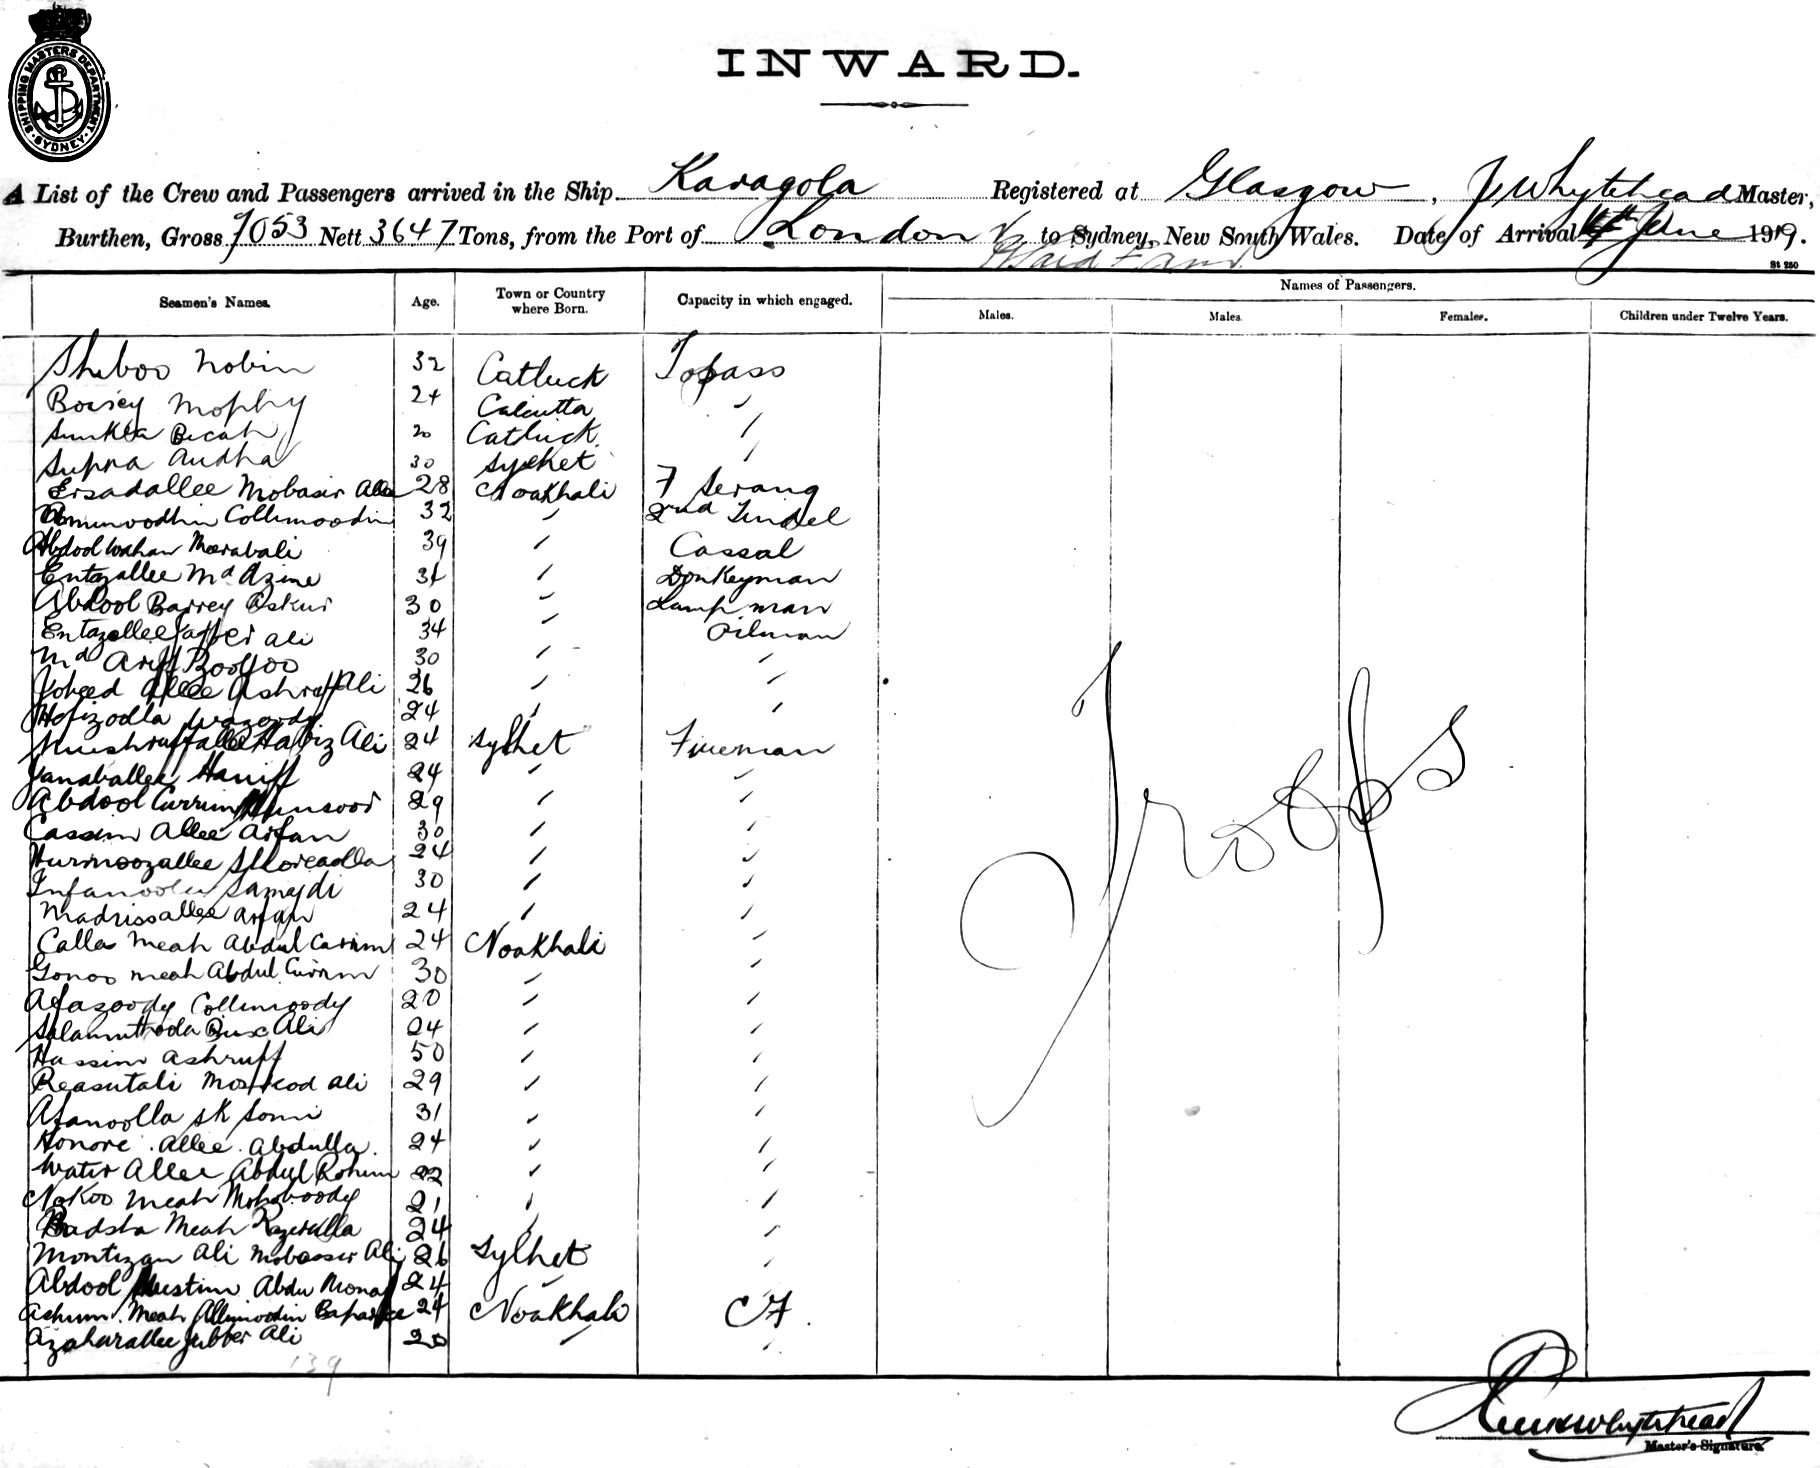 SHIPPING MASTERS DEPARTMENT SYDNEY
INWARD.
A List of the Crew and Passengers arrived in the Ship Karagola Registered at Glasgow, J Whytehead Master,
Burthen, Gross 7053 Nett 3647 Tons, from the Port of London to Sydney, New South Wales. Date of Arrival 4th June 1919.
St 250
Seamen's Names. Age. Town or Country where Born. Capacity in which engaged. Names of Passengers.
Males. Males. Females. Children under Twelve Years.
Sheboo Nobin 32 Catluck Topass
Boisey Mophy 24 Calcutta "
Sunkta Bicah 20 Catluck "
Supna Audha 30 Sylhet "
Ersadallee Mobasir Allee 28 Noakhali F Serang
Aminoodhin Collimoodin 32 " 2nd Tindel
Abdool Wahan Marabali 39 " Cassal
Entazallee Md Azime 31 " Donkeyman
Abdool Barrey Askur 30 " Lampman
Entazallee Jaffer Ali 34 " Oilman
Md Ariff 30 " "
Allee Ashraff Ali 26 " "
Hofizodla 24 " "
Mushruffallee Habiz Ali 24 Sylhet Fireman
Janaballee Haniff 24 " "
Abdool Currim Munsoor 29 " "
Cassim Allee Arfan 30 " "
Hurmoozallee 24 " "
Samaydi 30 " "
Madrissallee Arfan 24 " "
Calla Meah Abdul Carrim 24 Noakhali "
Gonoo Meah Abdul Currim 30 " "
Afazoody Collimoody 20 " "
Bux Ali 24 " "
Hassim Ashruff 50 " "
Reasutali Ali 29 " "
Afanoolla Sk Somi 31 " "
Honore Allee Abdulla 24 " "
Water Allee Abdul Rohim 22 " "
Nokoo Meah Mohoboody 21 " "
Badsha Meah 24 " "
Montizan Ali Mobassir Ali 26 Sylhet "
Abdool Mustim Abdu Mona 24 " "
Ashum Meah Allimoodin 24 Noakhali CF.
Azaharallee Jubber Ali 20 " "
139
Troops
Whytehead
Master's Signature.